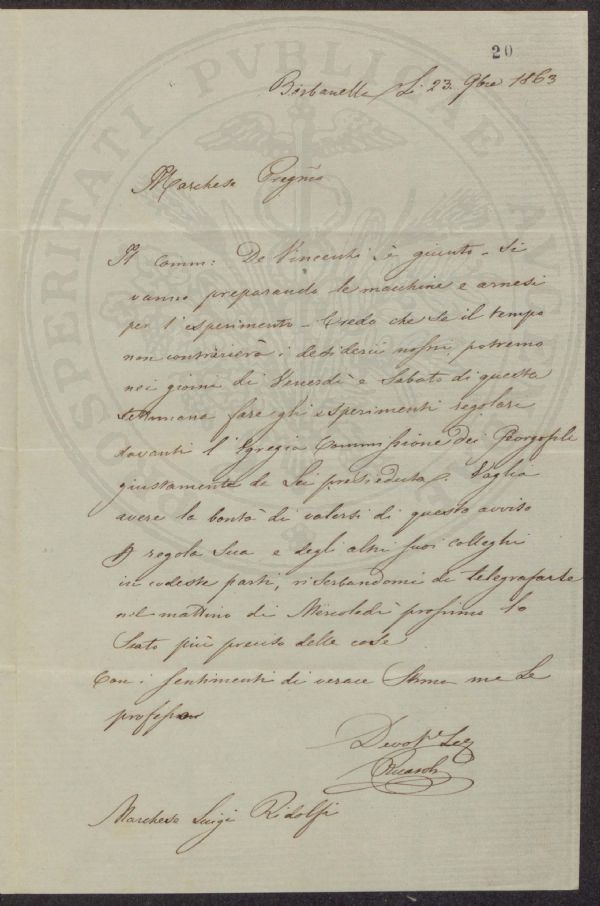 20
Barbanella Li 23. 9bre 1863
Marchese Pregmo
Il Comm: De Vincenti è giunto - Si
vanno preparando le macchine e arnesi
per l'esperimento - Credo che se il tempo
non contrarierà i desiderii nostri potremo
nei giorni di Venerdì e Sabato di questa
settimana fare gli esperimenti regolari
davanti l'Egregia Commissione dei Georgofili
giustamente da Lei presieduta. Voglia
avere la bontà di valersi di questo avviso
regola Sua e degli altri suoi colleghi
in codeste parti, riserbandomi di telegrafarle
nel mattino di Mercoledì prossimo lo
Stato più preciso delle cose
Con i sentimenti di verace Stima me Le
professo
Devot.
Ricasoli
Marchese Luigi Ridolfi
PROSPERITATI PVBLICAE